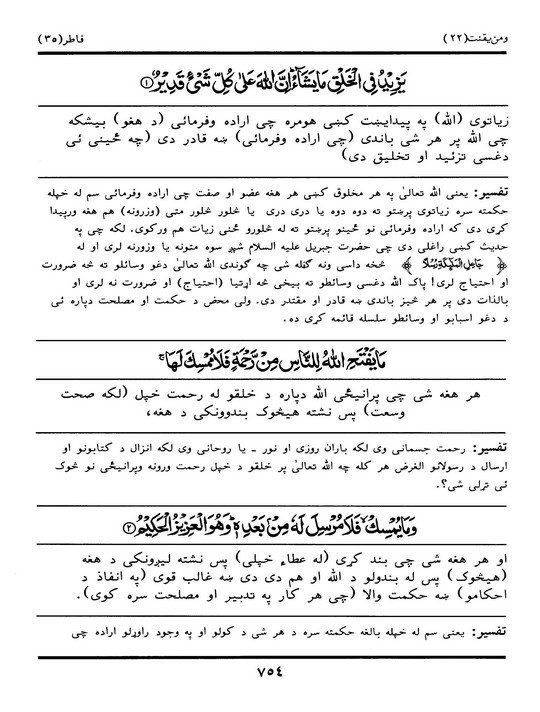 ومن یقنت(۲۲)
فاطر(۳۵)
یَزِیْدُ فِی الْخَلْقِ مَا یَشَآءُ ؕ اِنَّ اللّٰهَ عَلٰی کُلِّ شَیْءٍ قَدِیْرٌ ۱
زیاتوی (الله) په پیدایښت کښی هومره چی اراده وفرمائی (د هغو) بیشکه
چی الله پر هر شی باندی (چی اراده وفرمائی) ښه قادر دی (چه ځینی ئی
دغسی تزئید او تخلیق دی)
تفسیر: یعنی الله تعالیٰ په هر مخلوق کښی هر هغه عضو او صفت چی اراده وفرمائی سم له خپله
حکمته سره زیاتوی پرښتو ته دوه دوه یا دری دری یا څلور څلور متی (وزرونه) هم هغه ورپیدا
کړی دی که اراده وفرمائی نو ځینو پرښتو ته له څلورو ځنی زیات هم ورکوی. لکه چی په
حدیث کښی راغلی دی چی حضرت جبریل علیه السلام شپږ سوه متونه یا وزرونه لری او له
﴿ جَاعِلِ الْمَلٰٓئِکَةِ رُسُلًا ﴾ څخه داسی ونه ګڼله شی چه ګوندی الله تعالیٰ دغو وسائلو ته څه ضرورت
او احتیاج لری! پاک الله دغسی وسائطو ته بیخی څه اړتیا (احتیاج) او ضرورت نه لری او
بالذات دی پر هر څیز باندی ښه قادر او مقتدر دی. ولی محض د حکمت او مصلحت دپاره ئی
د دغو اسبابو او وسائطو سلسله قائمه کړی ده.
مَا یَفْتَحِ اللّٰهُ لِلنَّاسِ مِنْ رَّحْمَةٍ فَلَا مُمْسِکَ لَهَا ۚ
هر هغه شی چی پرانیځی الله دپاره د خلقو له رحمت خپل (لکه صحت
وسعت) پس نشته هیڅوک بندوونکی د هغه،
تفسیر: رحمت جسمانی وی لکه باران روزی او نور ـ یا روحانی وی لکه انزال د کتابونو او
ارسال د رسولانو الغرض هر کله چه الله تعالیٰ پر خلقو د خپل رحمت ورونه وپرانیځی نو څوک
ئی تړلی شی؟.
وَمَا یُمْسِکْ ۙ فَلَا مُرْسِلَ لَهٗ مِنْۢ بَعْدِهٖ ؕ وَهُوَ الْعَزِیْزُ الْحَکِیْمُ ۲
او هر هغه شی چی بند کړی (له عطاء خپلی) پس نشته لیږونکی د هغه
(هیڅوک) پس له بندولو د الله او هم دی دی ښه غالب قوی (په انفاذ د
احکامو) ښه حکمت والا (چی هر کار په تدبیر او مصلحت سره کوی).
تفسیر: یعنی سم له خپله بالغه حکمته سره د هر شی د کولو او په وجود راوړلو اراده چی
۷۵٤